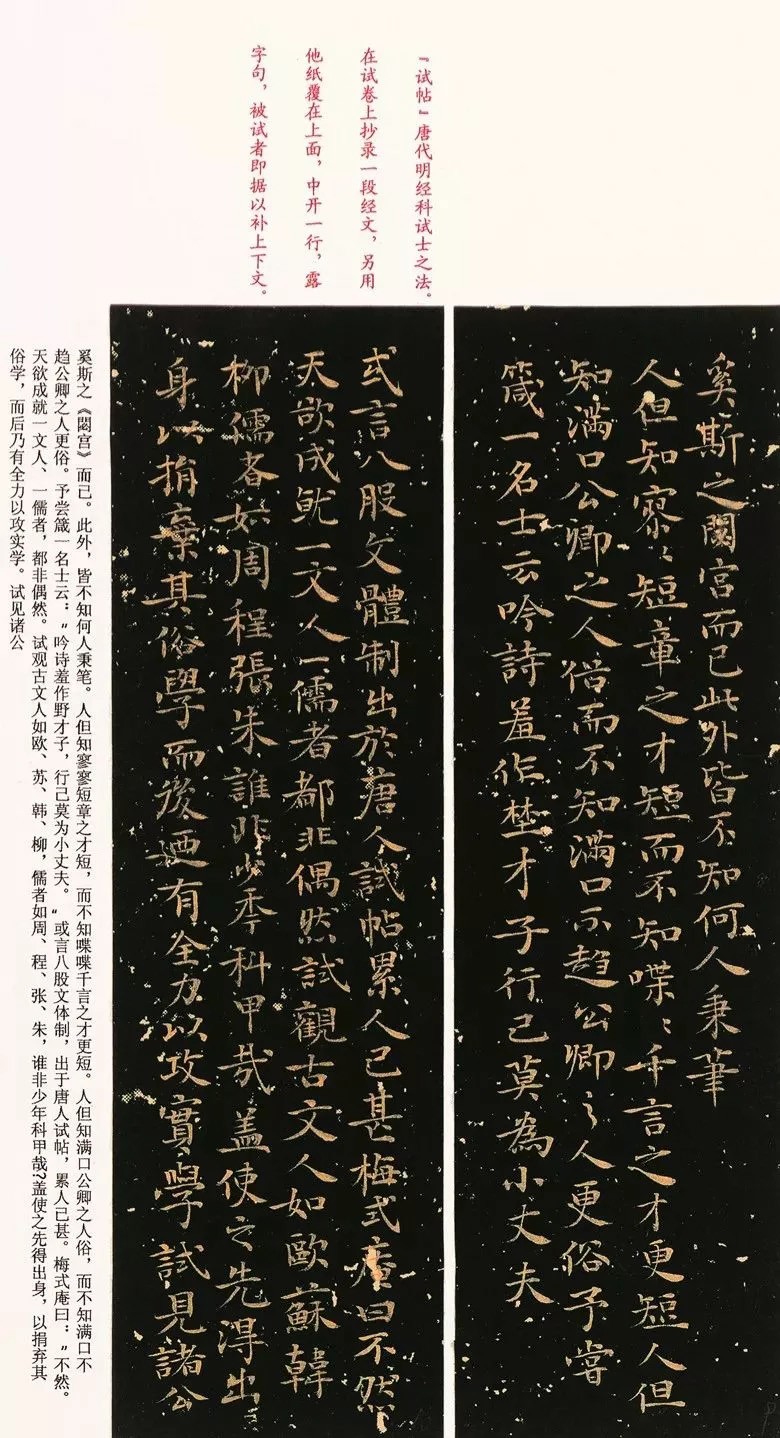 『试帖』唐代明经科试士之法。
在试卷上抄录一段经文，另用
他纸覆在上面，中开一行，露
字句，被试者即据以补上下文。
奚斯之閟宮而已此外皆不知何人秉筆
人但知寥〻短章之才短而不知喋〻千言之才更短人但
知滿口公卿之人俗而不知滿口不趋公卿之人更俗予嘗
箴一名士云吟詩羞作埜才子行己莫為小丈夫
或言八股文體制出於唐人試帖累人已甚梅式庵曰不然
天欲成就一文人一儒者都非偶然試觀古文人如歐蘇韓
柳儒者如周程張朱誰非少年科甲哉盖使之先得出
身以捐棄其俗學而後迺有全力以攻實學試見諸公
奚斯之《閟宫》而已。此外，皆不知何人秉笔。人但知寥寥短章之才短，而不知喋喋千言之才更短。人但知满口公卿之人俗，而不知满口不
趋公卿之人更俗。予尝箴一名士云：“吟诗羞作野才子，行己莫为小丈夫。”或言八股文体制，出于唐人试帖，累人已甚。梅式庵曰：“不然。
天欲成就一文人、一儒者，都非偶然。试观古文人如欧、苏、韩、柳，儒者如周、程、张、朱，谁非少年科甲哉?盖使之先得出身，以捐弃其
俗学，而后乃有全力以攻实学。试见诸公